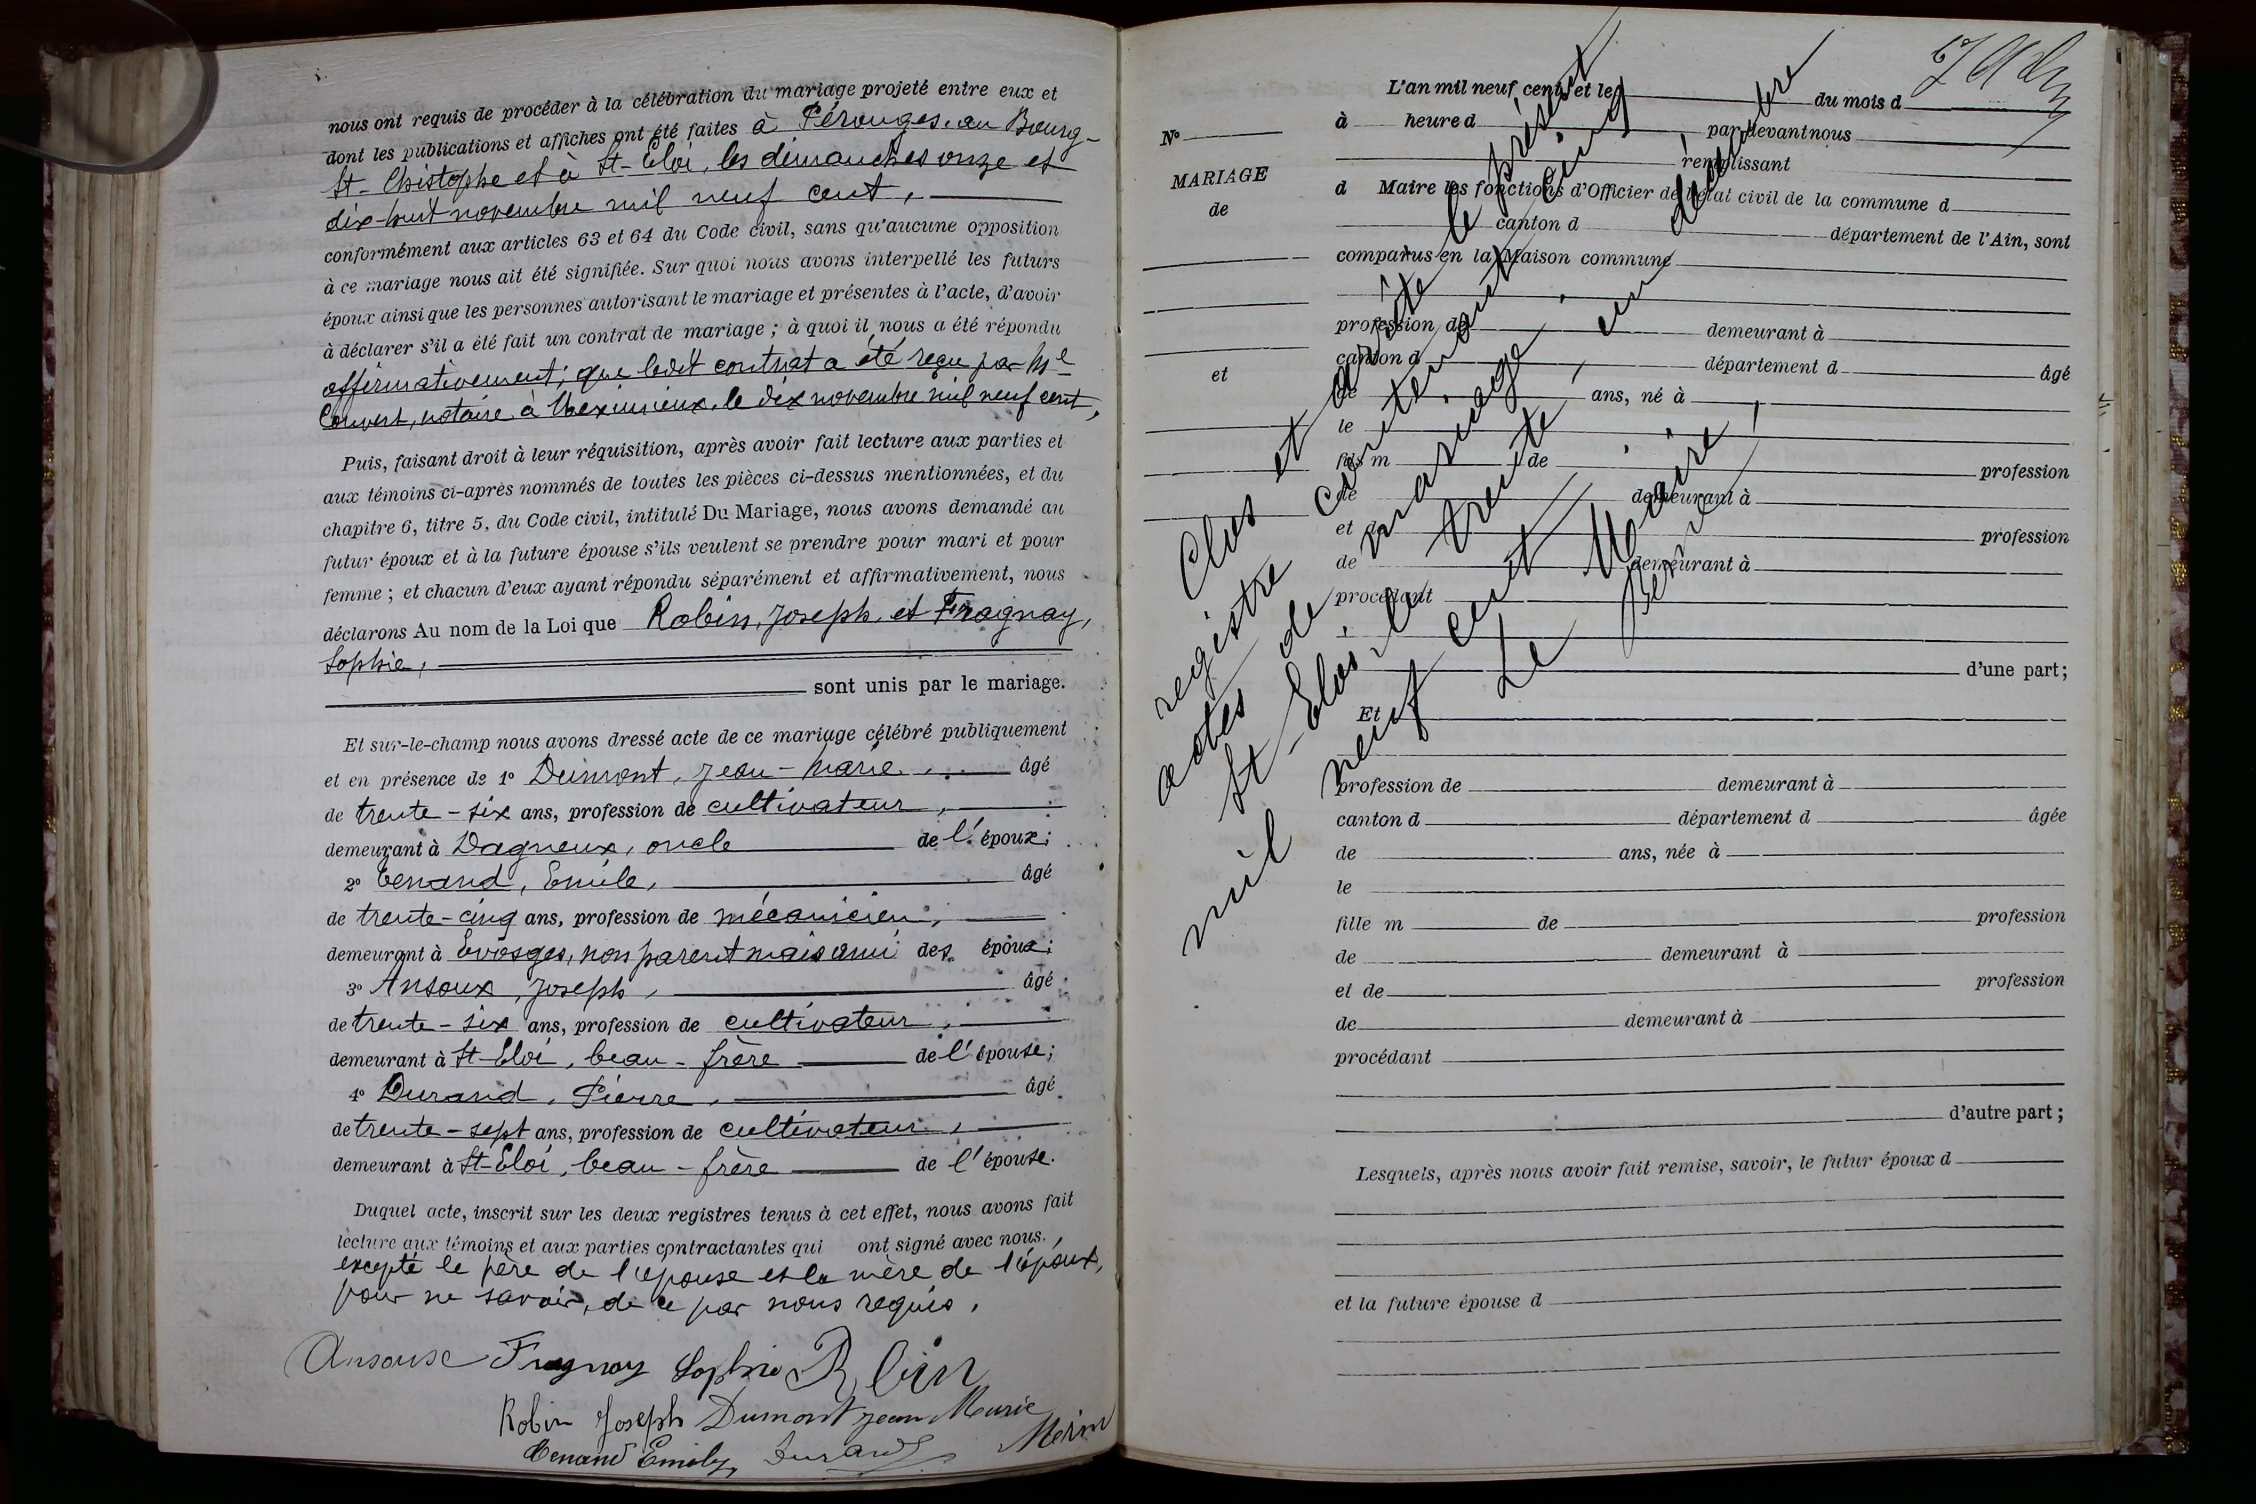 nous ont requis de procéder à la célébration du mariage projeté entre eux et
dont les publications et affiches ont été faites à Pérouges, au Bourg-
St-Chistophe et à St-Eloi, les dimanches onze et
dix-huit novembre mil neuf cent,
conformément aux articles 63 et 64 du Code civil, sans qu'aucune opposition
à ce mariage nous ait été signifiée. Sur quoi nous avons interpellé les futurs
époux ainsi que les personnes autorisant le mariage et présentes à l'acte, d'avoir
à déclarer s'il a été fait un contrat de mariage ; à quoi il nous a été répondu
affirmativement; que ledit contrat a été reçu par Me
Convert, notaire à Meximieux, le dix novembre mil neuf cent,
Puis, faisant droit à leur réquisition, après avoir fait lecture aux parties et
aux témoins ci-après nommés de toutes les pièces ci-dessus mentionnées, et du
chapitre 6, titre 5, du Code civil, intitulé Du Mariage, nous avons demandé au
futur époux et à la future épouse s'ils veulent se prendre pour mari et pour
femme ; et chacun d'eux ayant répondu séparément et affirmativement, nous
déclarons Au nom de la Loi que Robin, Joseph, et Fragnay,
Sophie,
sont unis par le mariage.
Et sur-le-champ nous avons dressé acte de ce mariage célébré publiquement
et en présence de 1o Dumont, Jean-Marie, âgé
de trente-six ans, profession de cultivateur,
demeurant à Dagneux, oncle de l'époux;
2o Tenand, Emile, âgé
de trente-cinq ans, profession de mécanicien,
demeurant à Evosges, non parent mais ami des époux;
3o Ansoux, Joseph, âgé
de trente-six ans, profession de cultivateur,
demeurant à St-Eloi, beau-frère de l'épouse;
4o Durand, Pierre, âgé
de trente-sept ans, profession de cultivateur,
demeurant à St-Eloi, beau-frère de l'épouse.
Duquel acte, inscrit sur les deux registres tenus à cet effet, nous avons fait
lecture aux témoins et aux parties contractantes qui ont signé avec nous,
excepté le père de l'épouse et la mère de l'époux,
pour ne savoir, de ce par nous requis.
Fragnay Sophie Robin
Robin Joseph Dumont Jean Marie
Tenand Emile Durand
No
MARIAGE
de
et
L'an mil neuf cent et le du mois d
à heure d par devant nous
remplissant
d Maire les fonctions d'Officier de l'état civil de la commune d
canton d département de l'Ain, sont
comparus en la Maison commune
profession de demeurant à
canton d département d âgé
de ans, né à
le
fils m de profession
de demeurant à
et de profession
de demeurant à
procédant
d'une part;
Et
profession de demeurant à
canton d département d âgée
de ans, née à
le
fille m de profession
de demeurant à
et de profession
de demeurant à
procédant
d'autre part ;
Lesquels, après nous avoir fait remise, savoir, le futur époux d
et la future épouse d
Clos et arrêté le présent
registre contenant cinq
actes de mariage
St-Eloi le trente, un décembre
mil neuf cent
Le Maire,